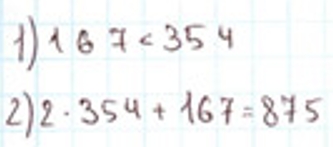 1) 167 < 354
2) 2 · 354 + 167 = 875